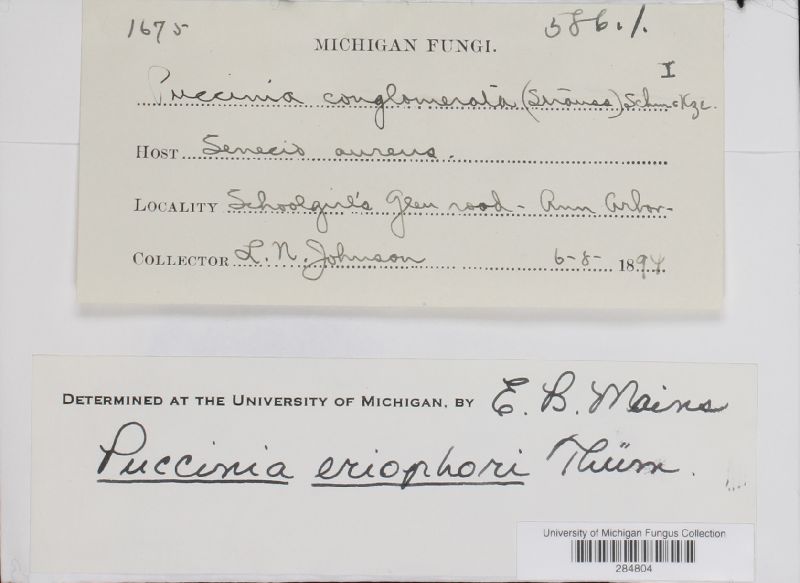 1675 586.1.
MICHIGAN FUNGI.
I
Puccinia conglomerata (Strauss) Schm & Kze.
HOST Senecio aureus.
LOCALITY Schoolgirl's Glen road - Ann Arbor -
COLLECTOR L. N. Johnson 6-8- 1894.
DETERMINED AT THE UNIVERSITY OF MICHIGAN, BY E. B. Mains
Puccinia eriophori Thüm.
University of Michigan Fungus Collection
284804